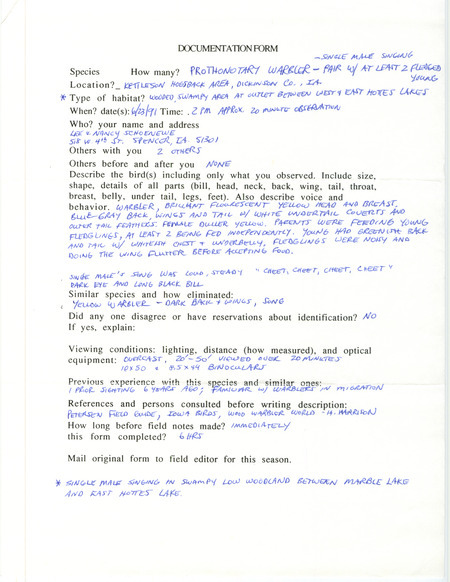 DOCUMENTATION FORM
- SINGLE MALE SINGING
Species How many? PROTHONOTARY WARBLER - PAIR W/ AT LEAST 2 FLEDGED
YOUNG
Location? KETTLESON HOGSBACK AREA, DICKINSON CO., IA.
* Type of habitat? WOODED, SWAMPY AREA AT OUTLET BETWEEN WEST & EAST HOTTES LAKES
When? date(s): 6/23/91 Time: 2 PM APPROX. 20 MINUTE OBSERVATION
Who? your name and address
LEE & NANCY SCHOENEWE
518 W. 4th ST. SPENCER, IA 51301
Others with you 2 OTHERS
Others before and after you NONE
Describe the bird(s) including only what you observed. Include size,
shape, details of all parts (bill, head, neck, back, wing, tail, throat,
breast, belly, under tail, legs, feet). Also describe voice and
behavior. WARBLER, BRILLIANT FLUORESCENT YELLOW HEAD AND BREAST,
BLUE-GRAY BACK, WINGS AND TAIL W/ WHITE UNDERTAIL COVERTS AND
OUTER TAIL FEATHERS. FEMALE DULLER YELLOW. PARENTS WERE FEEDING YOUNG
FLEDGLINGS, AT LEAST 2 BEING FED INDEPENDENTLY. YOUNG HAD GREENISH BACK
AND TAIL W/ WHITEISH CHEST & UNDERBELLY, FLEDGLINGS WERE NOISY AND
DOING THE WING FLUTTER BEFORE ACCEPTING FOOD.
SINGLE MALE'S SONG WAS LOUD, STEADY "CHEET, CHEET, CHEET, CHEET"
DARK EYE AND LONG BLACK BILL
Similar species and how eliminated:
YELLOW WARBLER - DARK BACK & WINGS, SONG
Did any one disagree or have reservations about identification? NO
If yes, explain:
Viewing conditions: lighting, distance (how measured), and optical
equipment: OVERCAST, 20'-50' VIEWED OVER 20 MINUTES
10X50 & 8.5X44 BINOCULARS
Previous experience with this species and similar ones:
1 PRIOR SIGHTING 6 YEARS AGO; FAMILIAR W/ WARBLERS IN MIGRATION
References and persons consulted before writing description:
PETERSEN FIELD GUIDE, IOWA BIRDS, WOOD WARBLER WORLD - H. HARRISON
How long before field notes made? IMMEDIATELY
this form completed? 6 HRS
Mail original form to field editor for this season.
* SINGLE MALE SINGING IN SWAMPY LOW WOODLAND BETWEEN MARBLE LAKE
AND EAST HOTTES LAKE.